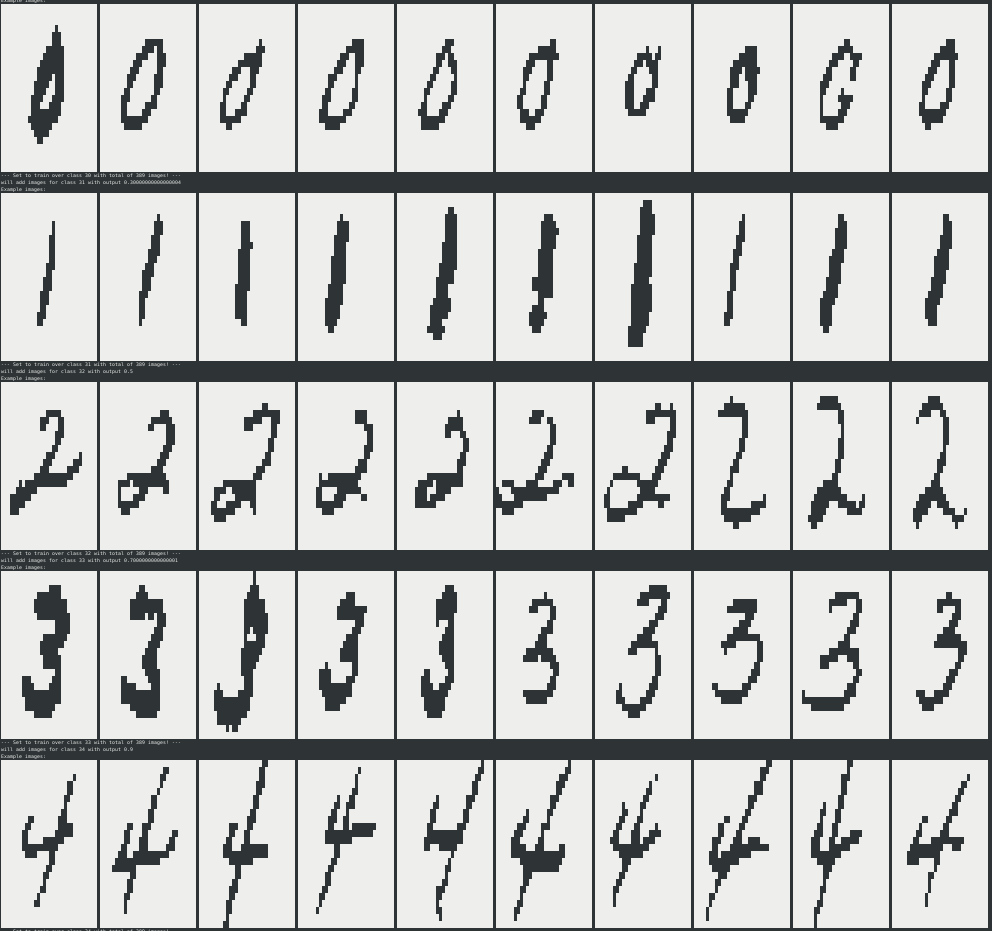 Example images:
0 0 0 0 0 0 0 0 G 0
--- Set to train over class 30 with total of 389 images! ---
will add images for class 31 with output 0.30000000000000004
Example images:
1 1 1 1 1 1 1 1 1 1
--- Set to train over class 31 with total of 389 images! ---
will add images for class 32 with output 0.5
Example images:
2 2 2 2 2 2 2 2 2 2
--- Set to train over class 32 with total of 389 images! ---
will add images for class 33 with output 0.7000000000000001
Example images:
3 3 3 3 3 3 3 3 3 3
--- Set to train over class 33 with total of 389 images! ---
will add images for class 34 with output 0.9
Example images:
4 4 4 4 4 4 4 4 4 4